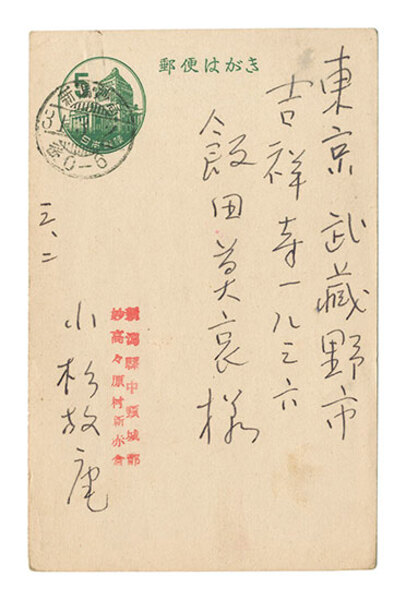 郵便はがき
5
日本郵便
後0-6
東京 武蔵野市
吉祥寺一八三六
飯田莫哀様
三、二
新潟縣中頸城郡
妙高々原村新赤倉
小杉放庵